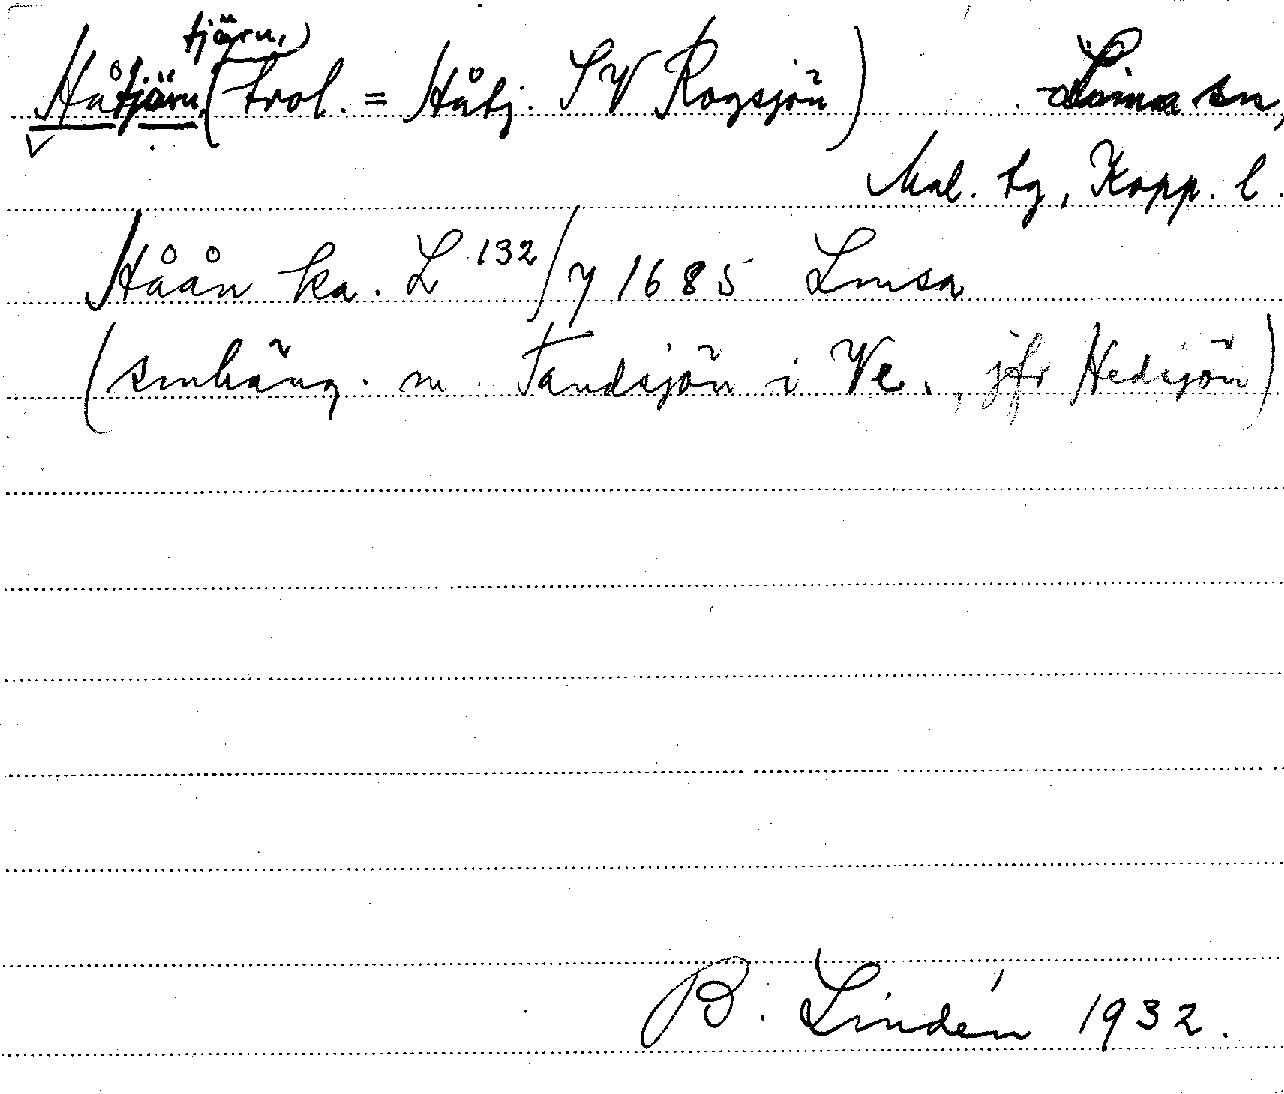 tjärn,)
Håtjärn, (trol. = Håtj. SV Rogsjön) Lima sn,
Mal. tg, Kopp. l.
Håån ka. L 132/7 1685 Lmsa
(smhäng. m. Tandsjön i Ve., jfr Hedsjön)
B. Lindén 1932.